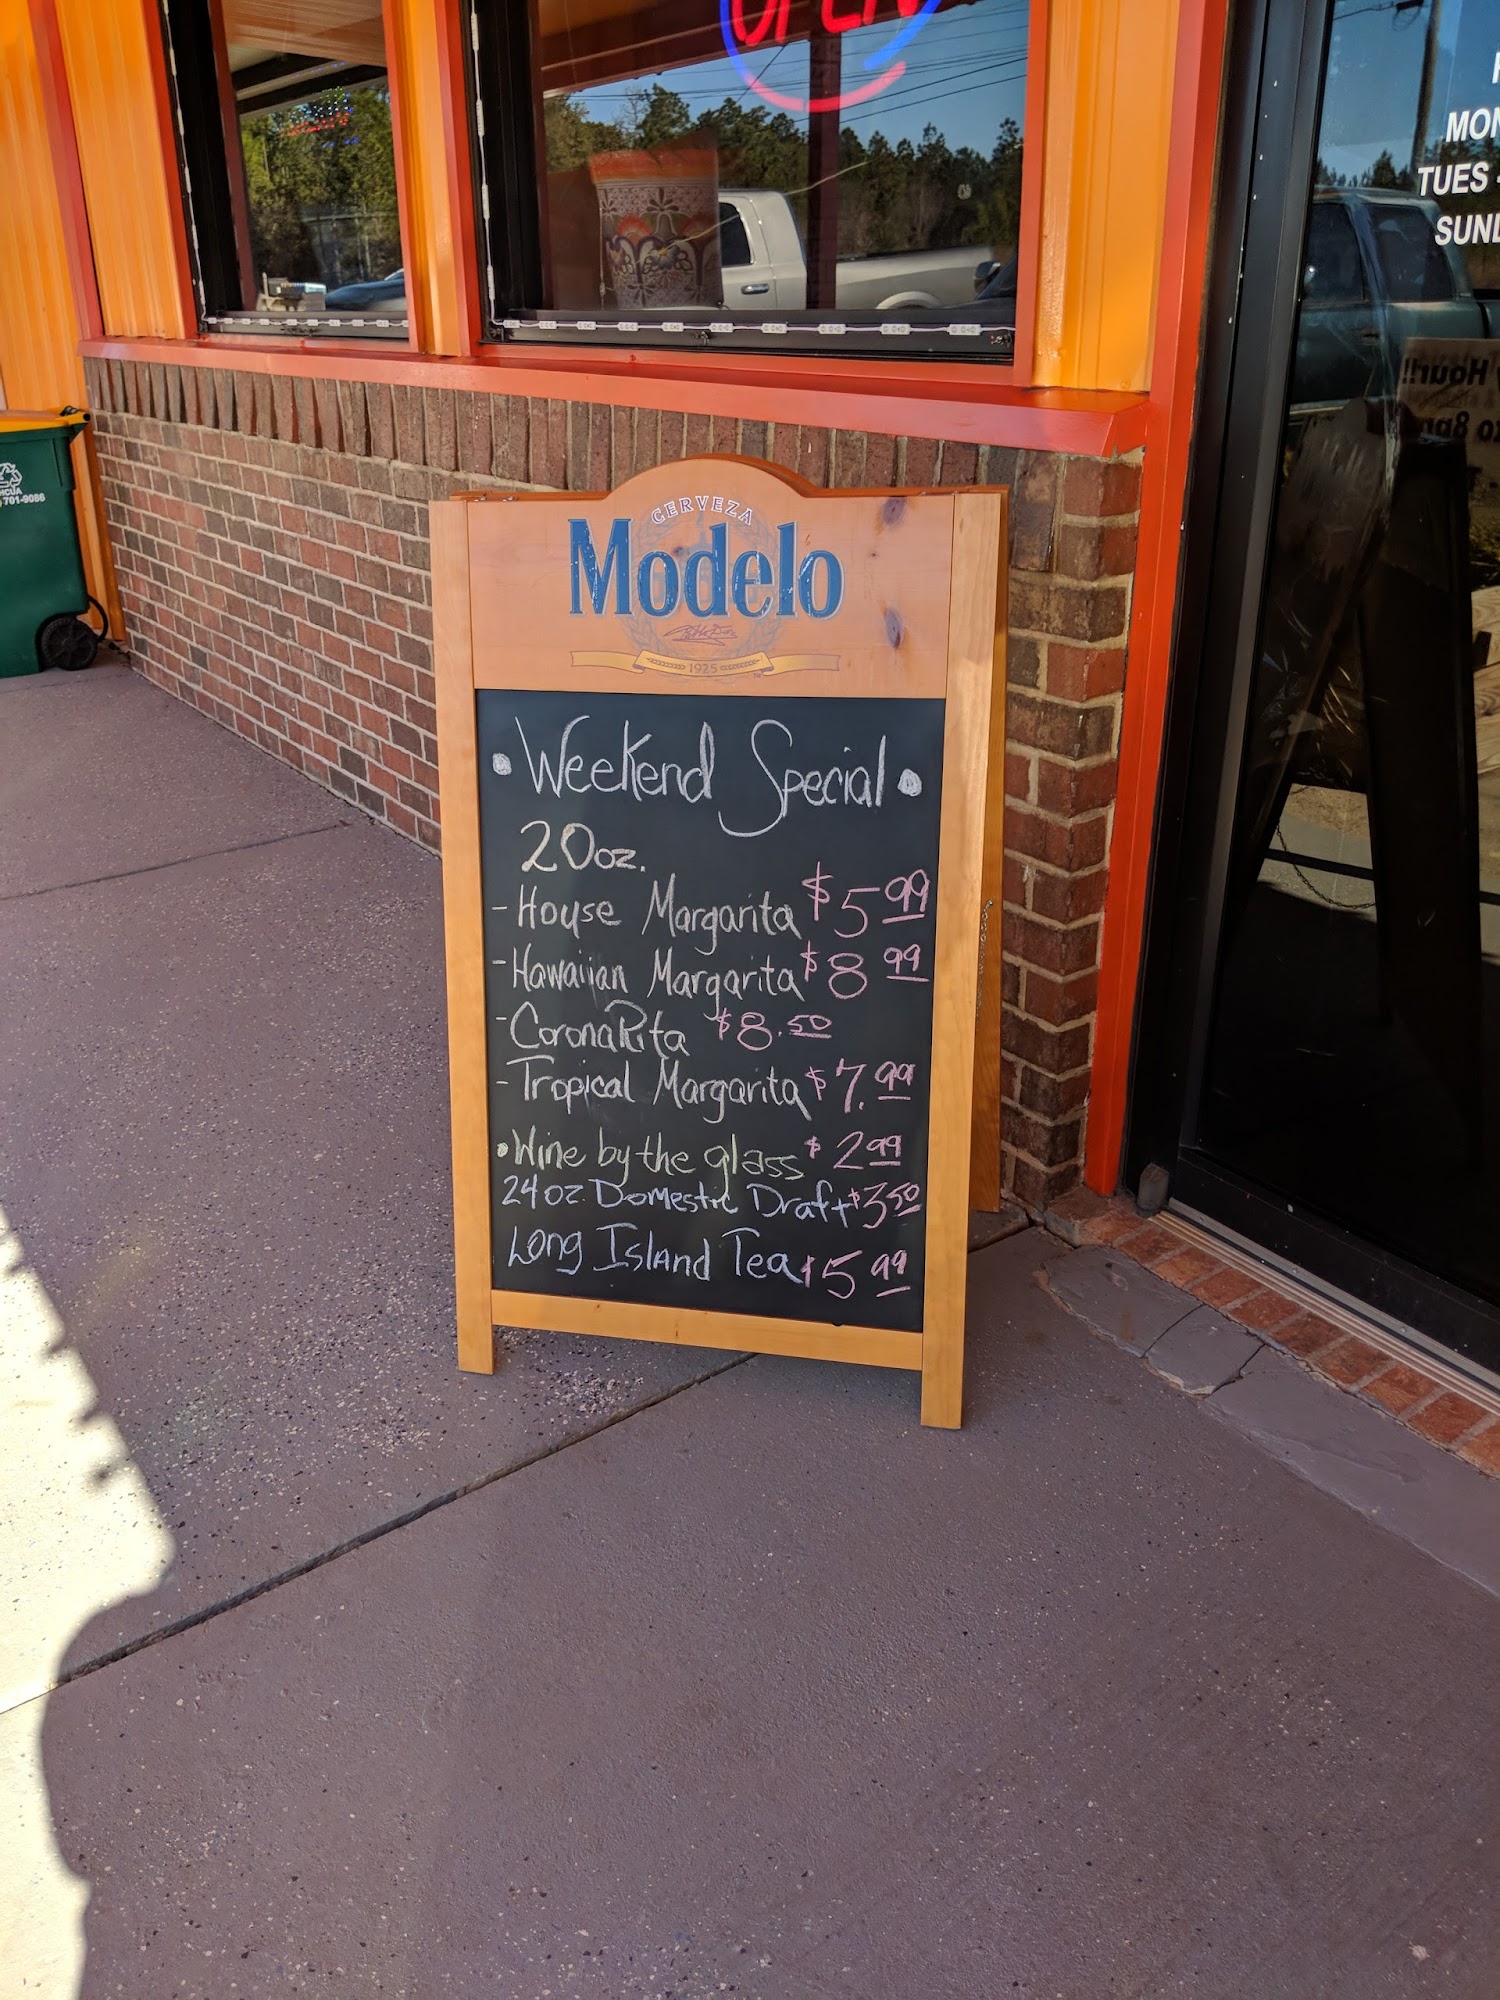 OPEN
MON
TUES -
SUND
HCUA
701-9086
Hour!!
to 8pm
CERVEZA
Modelo
1925
• Weekend Special •
20oz.
- House Margarita $5 99
- Hawaiian Margarita $8 99
- CoronaRita $8.50
- Tropical Margarita $7.99
• Wine by the glass $2 99
24oz Domestic Draft $3 50
Long Island Tea $5 99